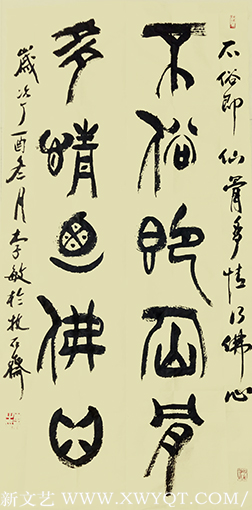 不俗即仙骨多情乃佛心
不俗即仙骨
多情乃佛心
歲次丁酉月李敏於石齋
新文艺 / WWW.XWYQT.COM/